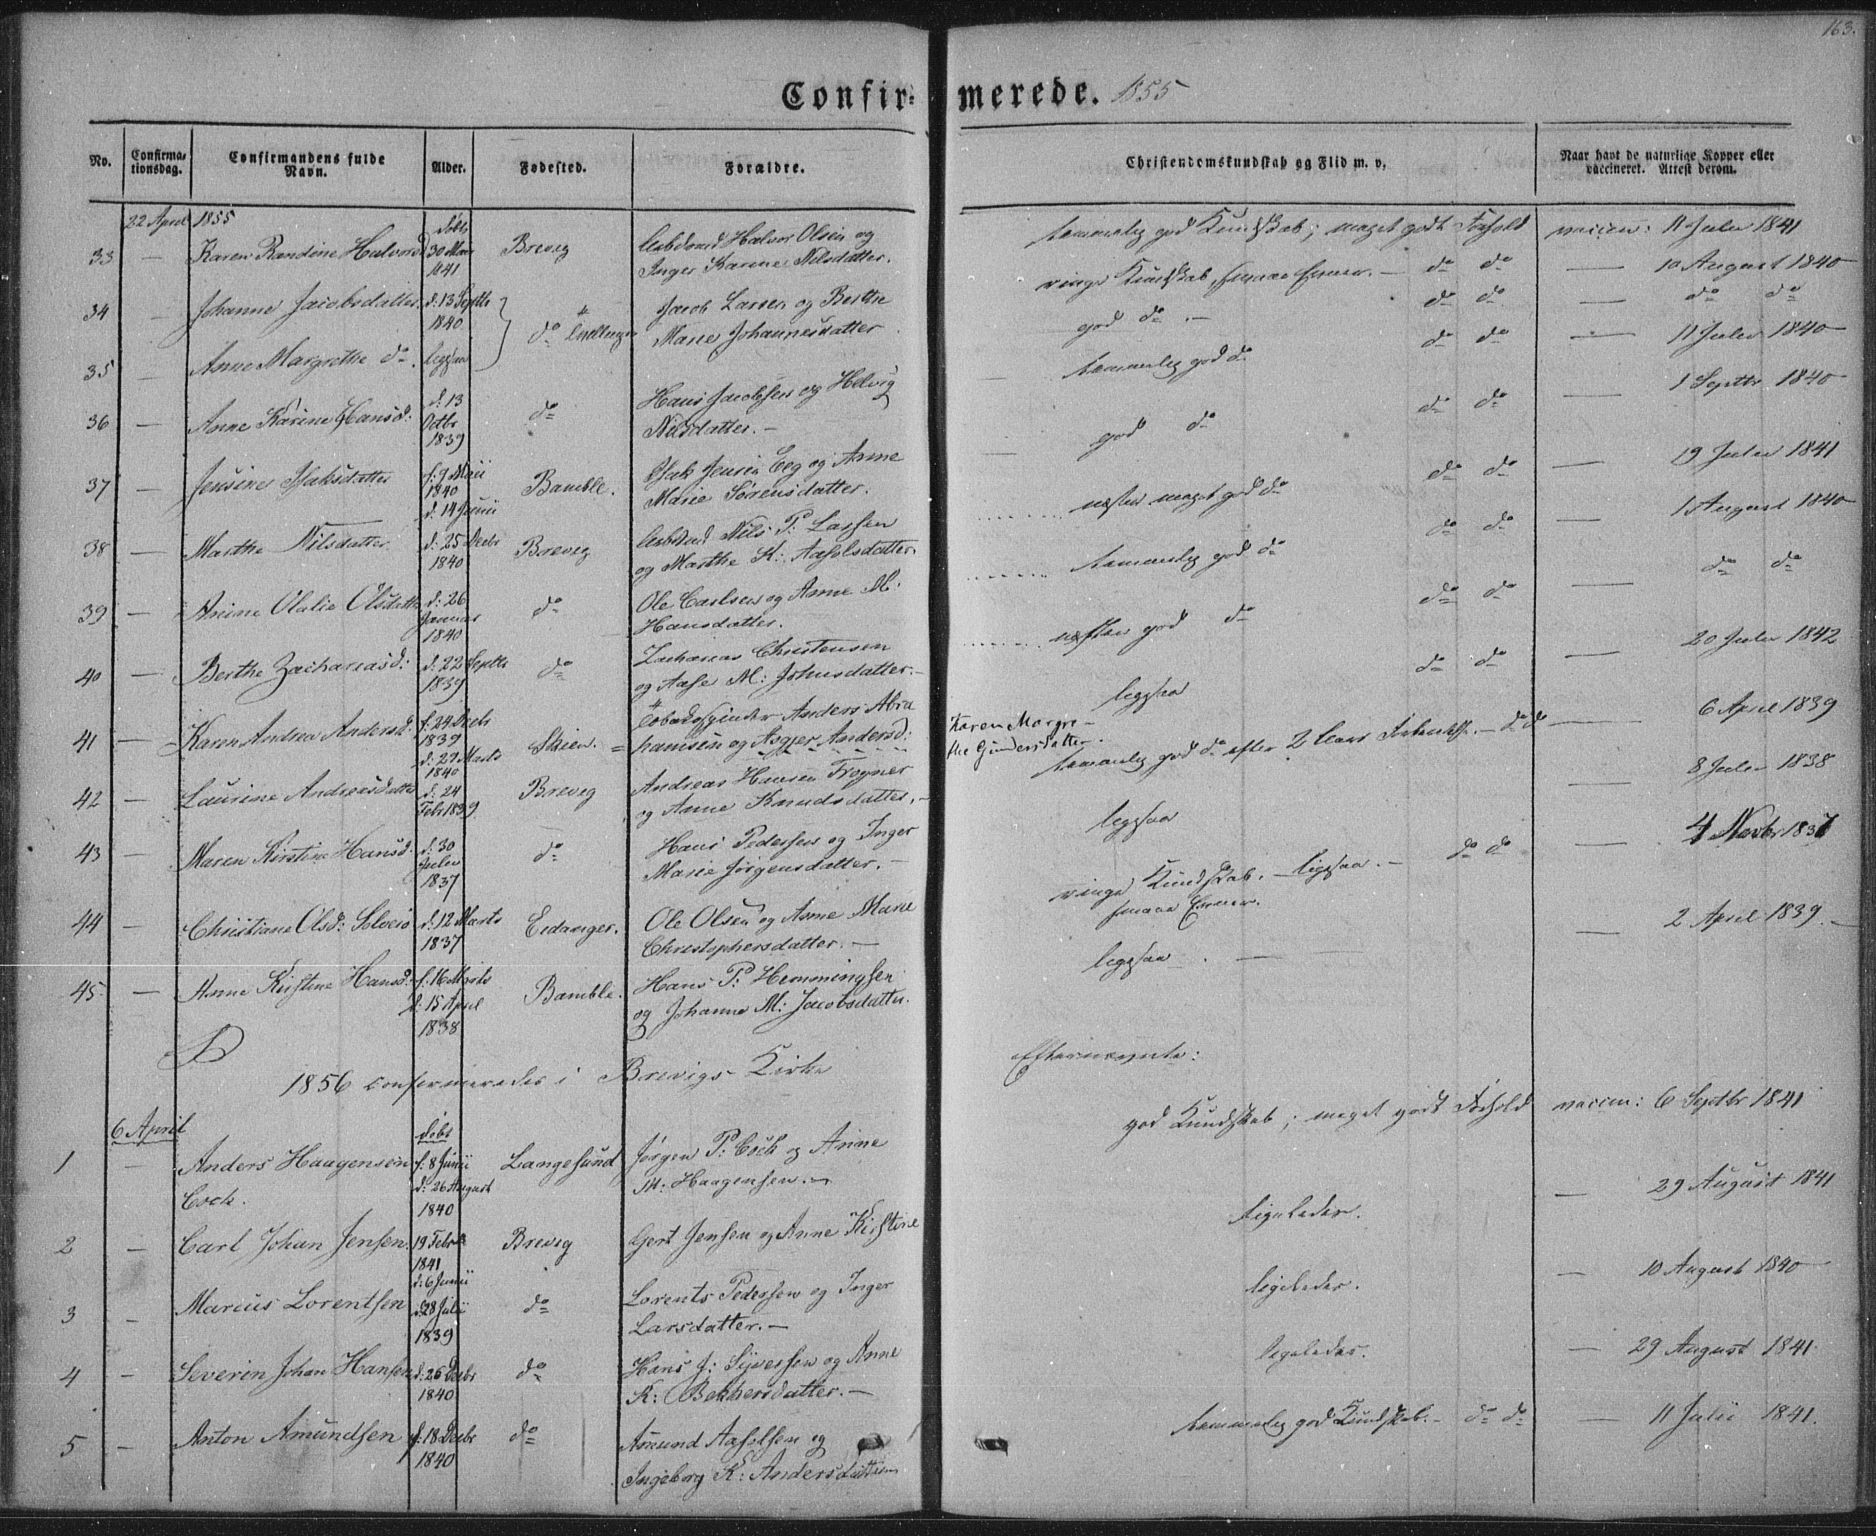 163.
Confir= merede. 1855
No. Confirma=tionsdag. Confirmandens fulde Navn. Alder. Fødested. Forældre. Christendomskundskab og Flid m. v. Naar havt de naturlige Kopper eller vaccineret. Attest derom.
22 April 1855
33 — Karen Randine Halvorsd døbt 30 Mai 1841 Brevig Halvor Olsen og
Inger Karine Nilsdatter. temmelig god Kundskab; meget godt Forhold vaccin: 11 Julii 1841
34 — Johanne Jacobsdatter d: 13 Septbr 1840 do Jacob Larsen og Berthe
Marie Johannesdatter ringe Kundskab, do do — 10 August 1840
god do. — do do do do
35 — Anne Margrethe do. ligesaa
temmelig god do do do — 11 Julii 1840
36 — Anne Karine Hansd: d: 13 Octbr 1839 do Hans Jacobsen og Helvig
Nilsdatter. — god do do do 1 Septbr 1840
37 — Jensine Isaksdatter f: 9 Maii 1840 d: 14 Junii Bamble. Isak Jensen Eeg og Anne
Marie Sørensdatter. næsten meget god do do do — 19 Julii 1841
38 — Marthe Nilsdatter d: 25 Decbr 1840 Brevig Nils P: Larsen
og Marthe K: Aslolsdatter temmelig god do do do — 1 August 1840
39 — Anine Olalie Olsdatter d: 26 Januar 1840 do Ole Carlsen og Anne M:
Hansdatter. næsten god do do do — do do
40 — Berthe Zachariasd: d: 22 Septbr 1839 do Zacharias Christensen
og Aase M: Johnsdatter. — ligesaa do do — 20 Julii 1842
41 — Karen Andrea Andersd: f: 24 Decbr 1839 d: 29 Marts 1840 Skien. = Anders Abra
hamsen og Asgjer Andersd: Karen Margre-
the Gundersdatter. temmelig god do efter 2 Aars — do do — 6 April 1839
42 — Laurine Andreasdatter d: 24 Febr 1839 Brevig Andreas Hansen Trogner
og Anne Knudsdatter. — ligesaa — 8 Julii 1838
43 — Maren Kirstine Hansd: d: 30 Julii 1837 do Hans Pedersen og Inger
Marie Jørgensdatter. — ringe Kundskab. — ligesaa. — do do — 4 Novbr 1837
44 — Christiane Olsd: Solveio d: 12 Marts 1837 Eidanger. Ole Olsen og Anne Marie
Christophersdatter. — ligesaa. — — 2 April 1839. —
45 — Anne Kirstine Hansd: f: 16 Marts d: 15 April 1838 Bamble. Hans P: Hemmingsen
og Johanne M: Jacobsdatter.
1856 confirmeredes i Brevigs Kirke Efternævnte:
6 April
1 — Anders Haagensen
Cock. døbt f: 8 Junii d: 26 August 1840 Langesund Jørgen P: Cock og Anne
M: Haagensen. — god Kundskab; meget godt Forhold vaccin: 6 Septbr 1841
2 — Carl Johan Jensen. 19 Febr 1841 Brevig Gert Jensen og Anne Kirstine ligeledes. — 29 August 1841
3 — Marcus Lorentsen d: 6 Junii d: 28 Julii 1839 do Lorents Pedersen og Inger
Larsdatter. — ligeledes. — 10 August 1840
4 — Severin Johan Hansen d: 26 Decbr 1840 do Hans J: Syversen og Anne
K: Bekkersdatter. — ligeledes. — 29 August 1841
5 — Anton Amundsen d: 18 Decbr 1840 do Amund Aslolsen og
Ingeborg K: Andersdatter temmelig god Kundskab. — do do — 11 Julii 1841.